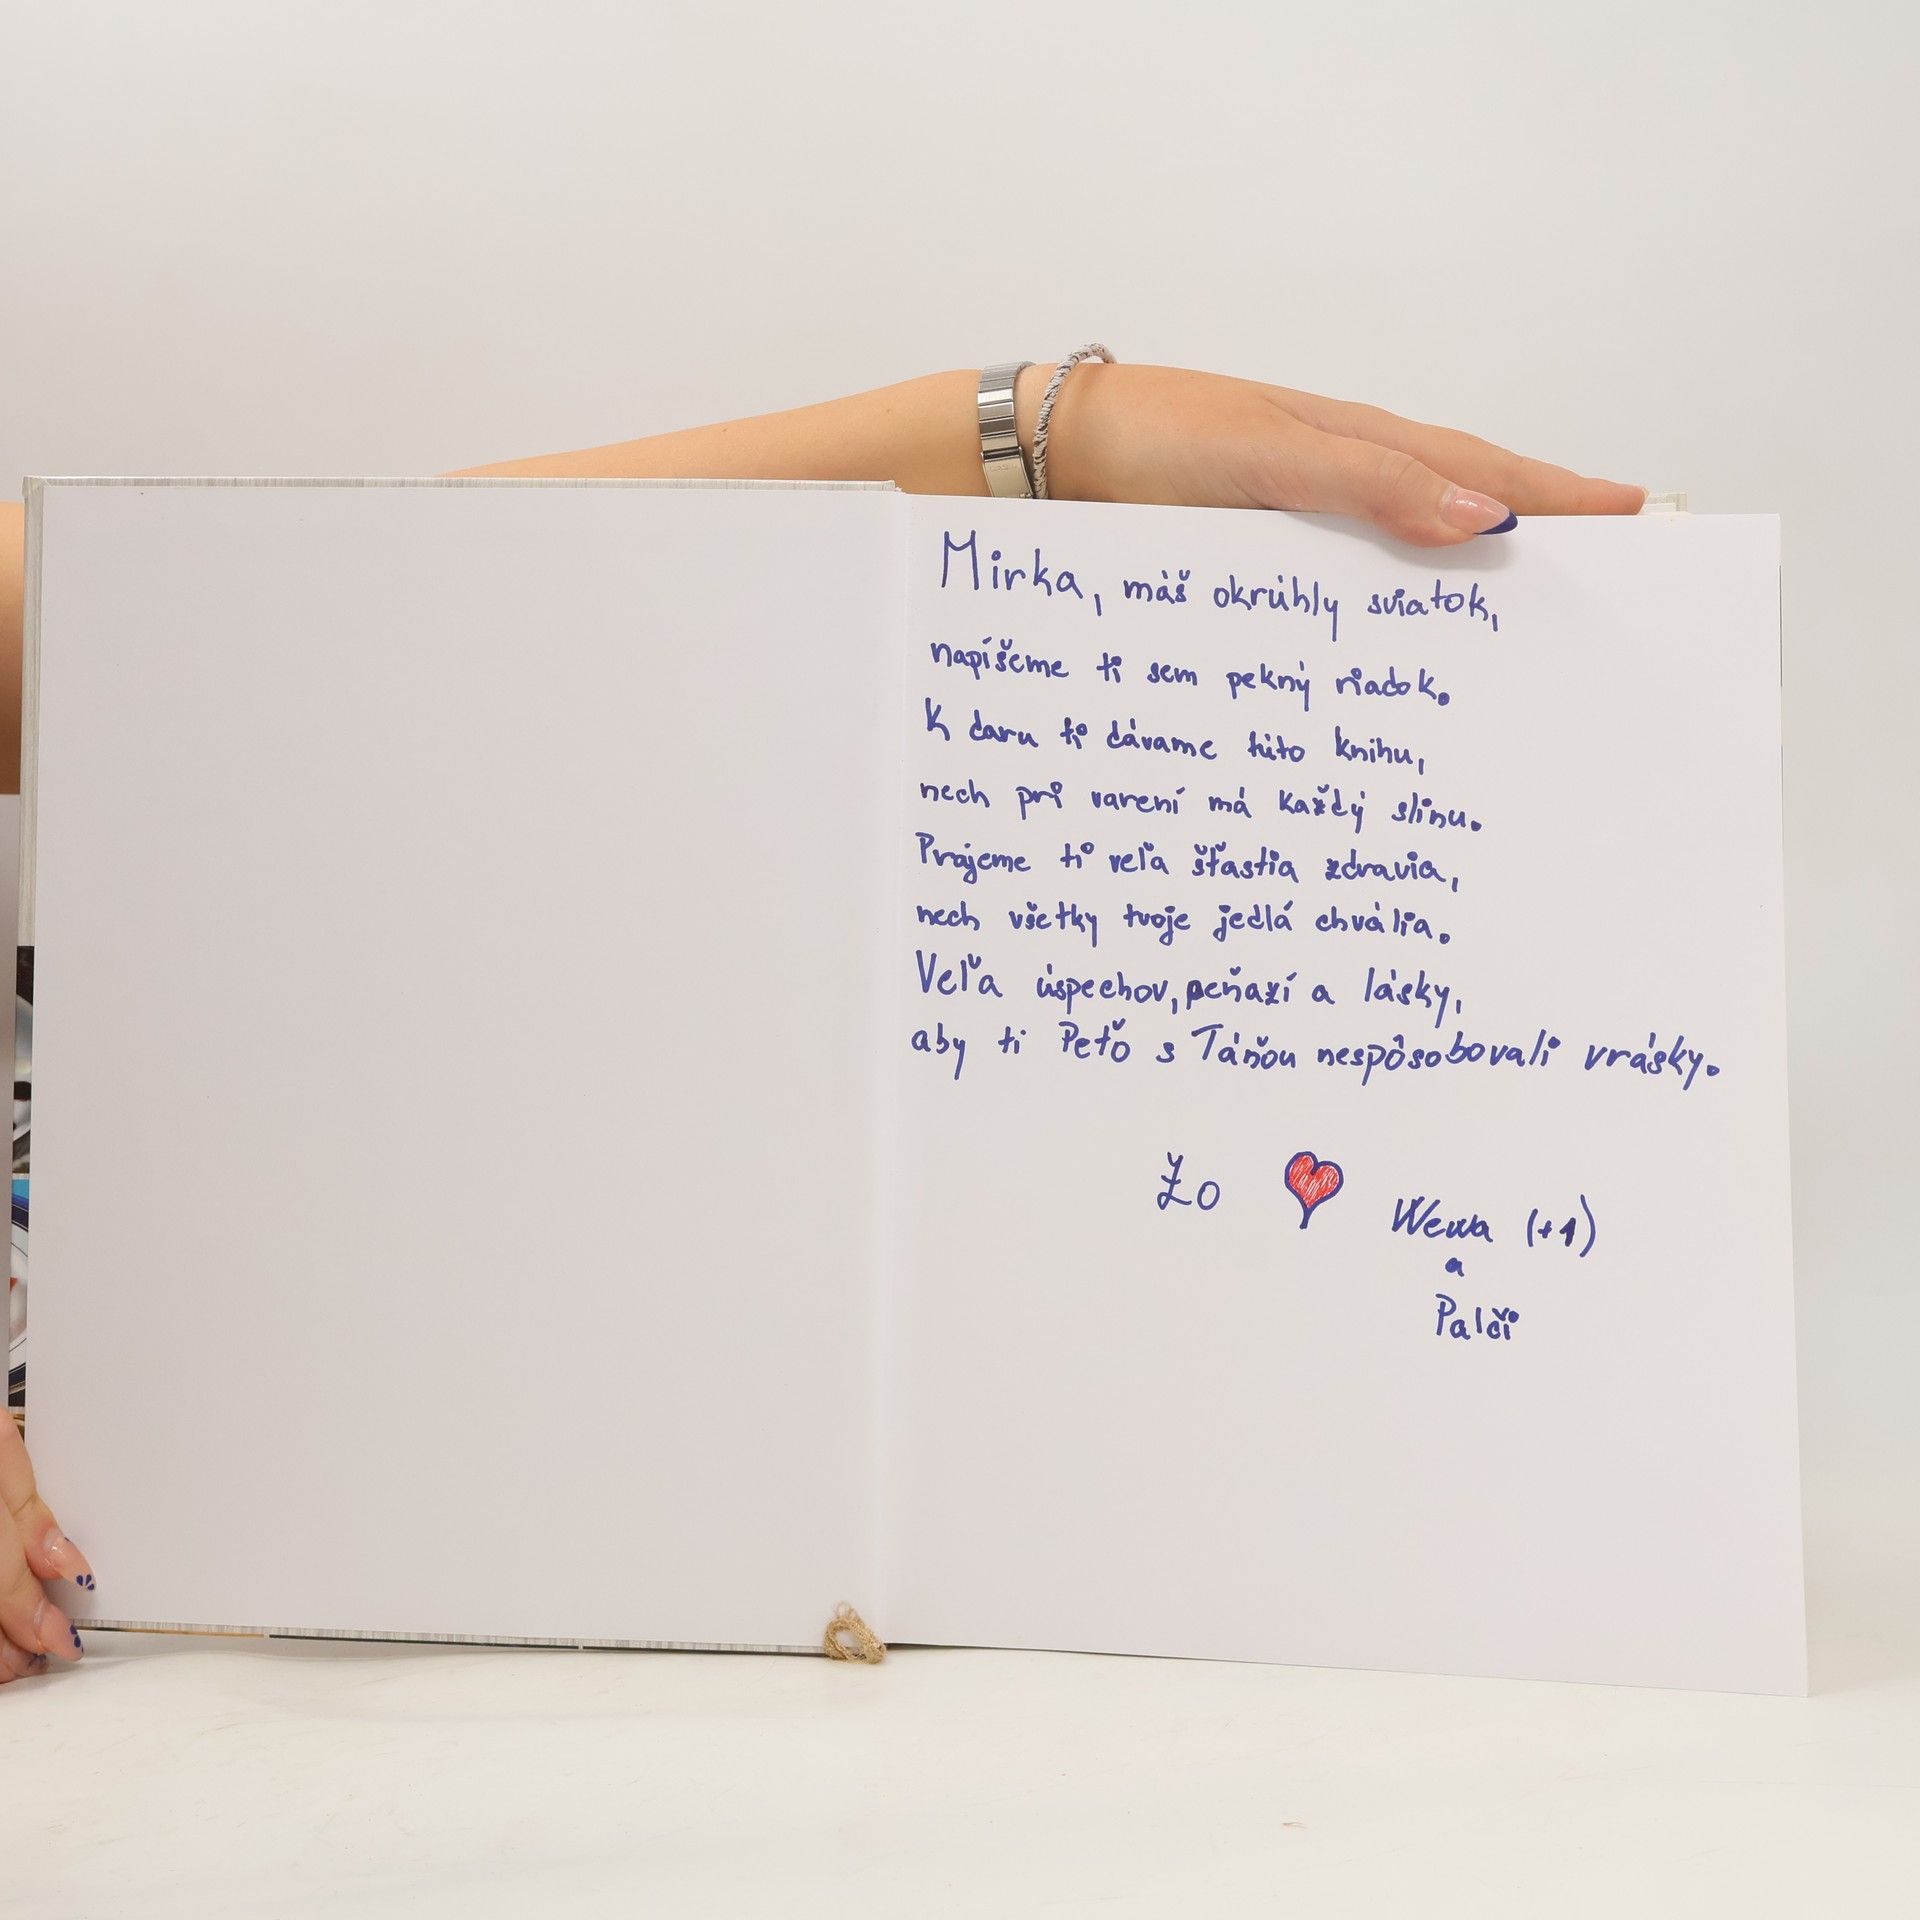 Mirka, máš okrúhly sviatok,
napíšeme ti sem pekný riadok.
K daru ti dávame túto knihu,
nech pri varení má každý slinu.
Prajeme ti veľa šťastia zdravia,
nech všetky tvoje jedlá chvália.
Veľa úspechov, peňazí a lásky,
aby ti Peťo s Táňou nespôsobovali vrásky.
Zo ❤ Wewa (+1)
a
Palči